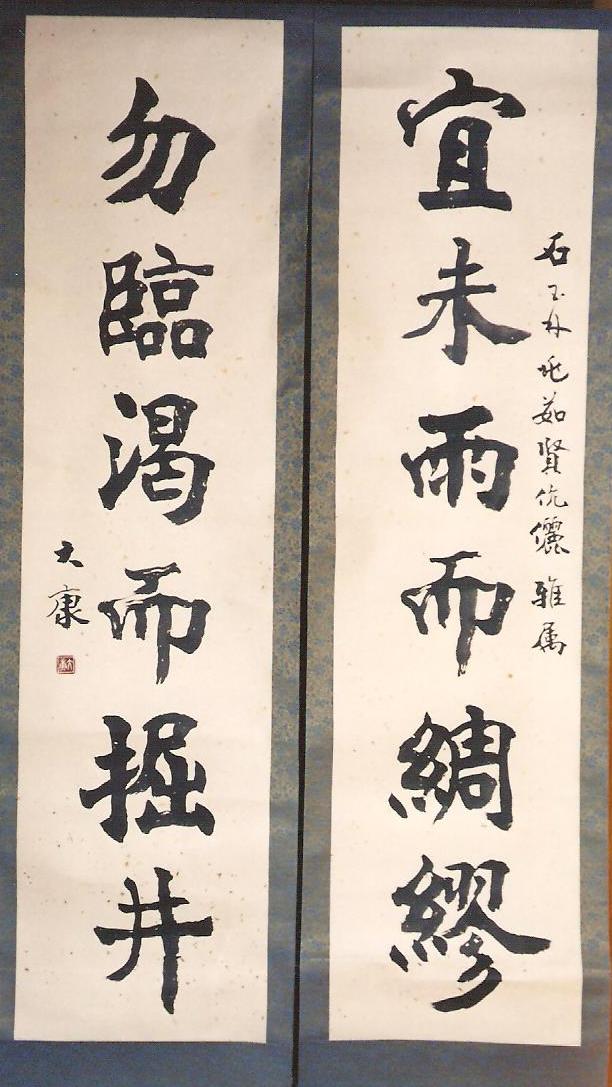 宜未雨而綢繆
石玉 兆茹賢伉儷雅属
勿臨渴而掘井
大康